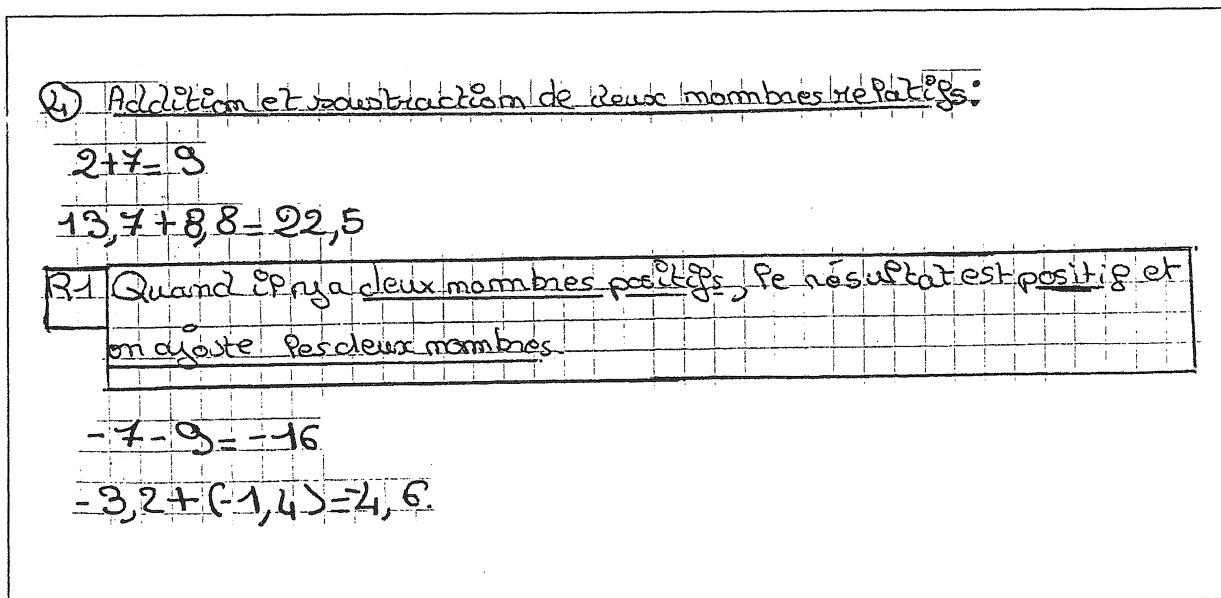 4) Addition et soustraction de deux nombres relatifs:
2+7= 9
13,7+8,8=22,5
R1 Quand il n y a deux nombres positifs, le résultat est positif et
on ajoute les deux nombres.
-7-9=-16
-3,2+(-1,4)=-4,6.